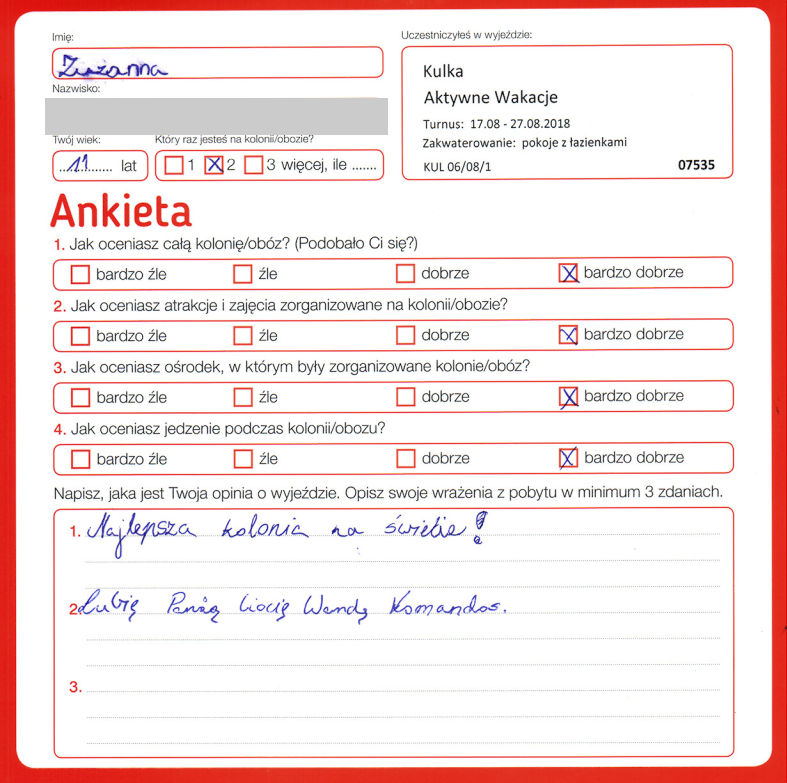 Imię:
Zuzanna
Uczestniczyłeś w wyjeździe:
Kulka
Aktywne Wakacje
Turnus: 17.08 - 27.08.2018
Zakwaterowanie: pokoje z łazienkami
KUL 06/08/1 07535
Nazwisko:
Twój wiek: Który raz jesteś na kolonii/obozie?
...11........ lat 1 X 2 3 więcej, ile .......
Ankieta
1. Jak oceniasz całą kolonię/obóz? (Podobało Ci się?)
bardzo źle źle dobrze X bardzo dobrze
2. Jak oceniasz atrakcje i zajęcia zorganizowane na kolonii/obozie?
bardzo źle źle dobrze X bardzo dobrze
3. Jak oceniasz ośrodek, w którym były zorganizowane kolonie/obóz?
bardzo źle źle dobrze X bardzo dobrze
4. Jak oceniasz jedzenie podczas kolonii/obozu?
bardzo źle źle dobrze X bardzo dobrze
Napisz, jaka jest Twoja opinia o wyjeździe. Opisz swoje wrażenia z pobytu w minimum 3 zdaniach.
1. Najlepsza kolonia na świecie!
2. Lubię Wandę Komandos.
3.